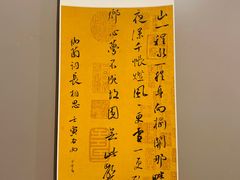 山一程水一程身向榆關那畔
夜深千帳燈風一更雪一更
鄉心夢不成故園無此聲
納蘭詞長相思壬寅